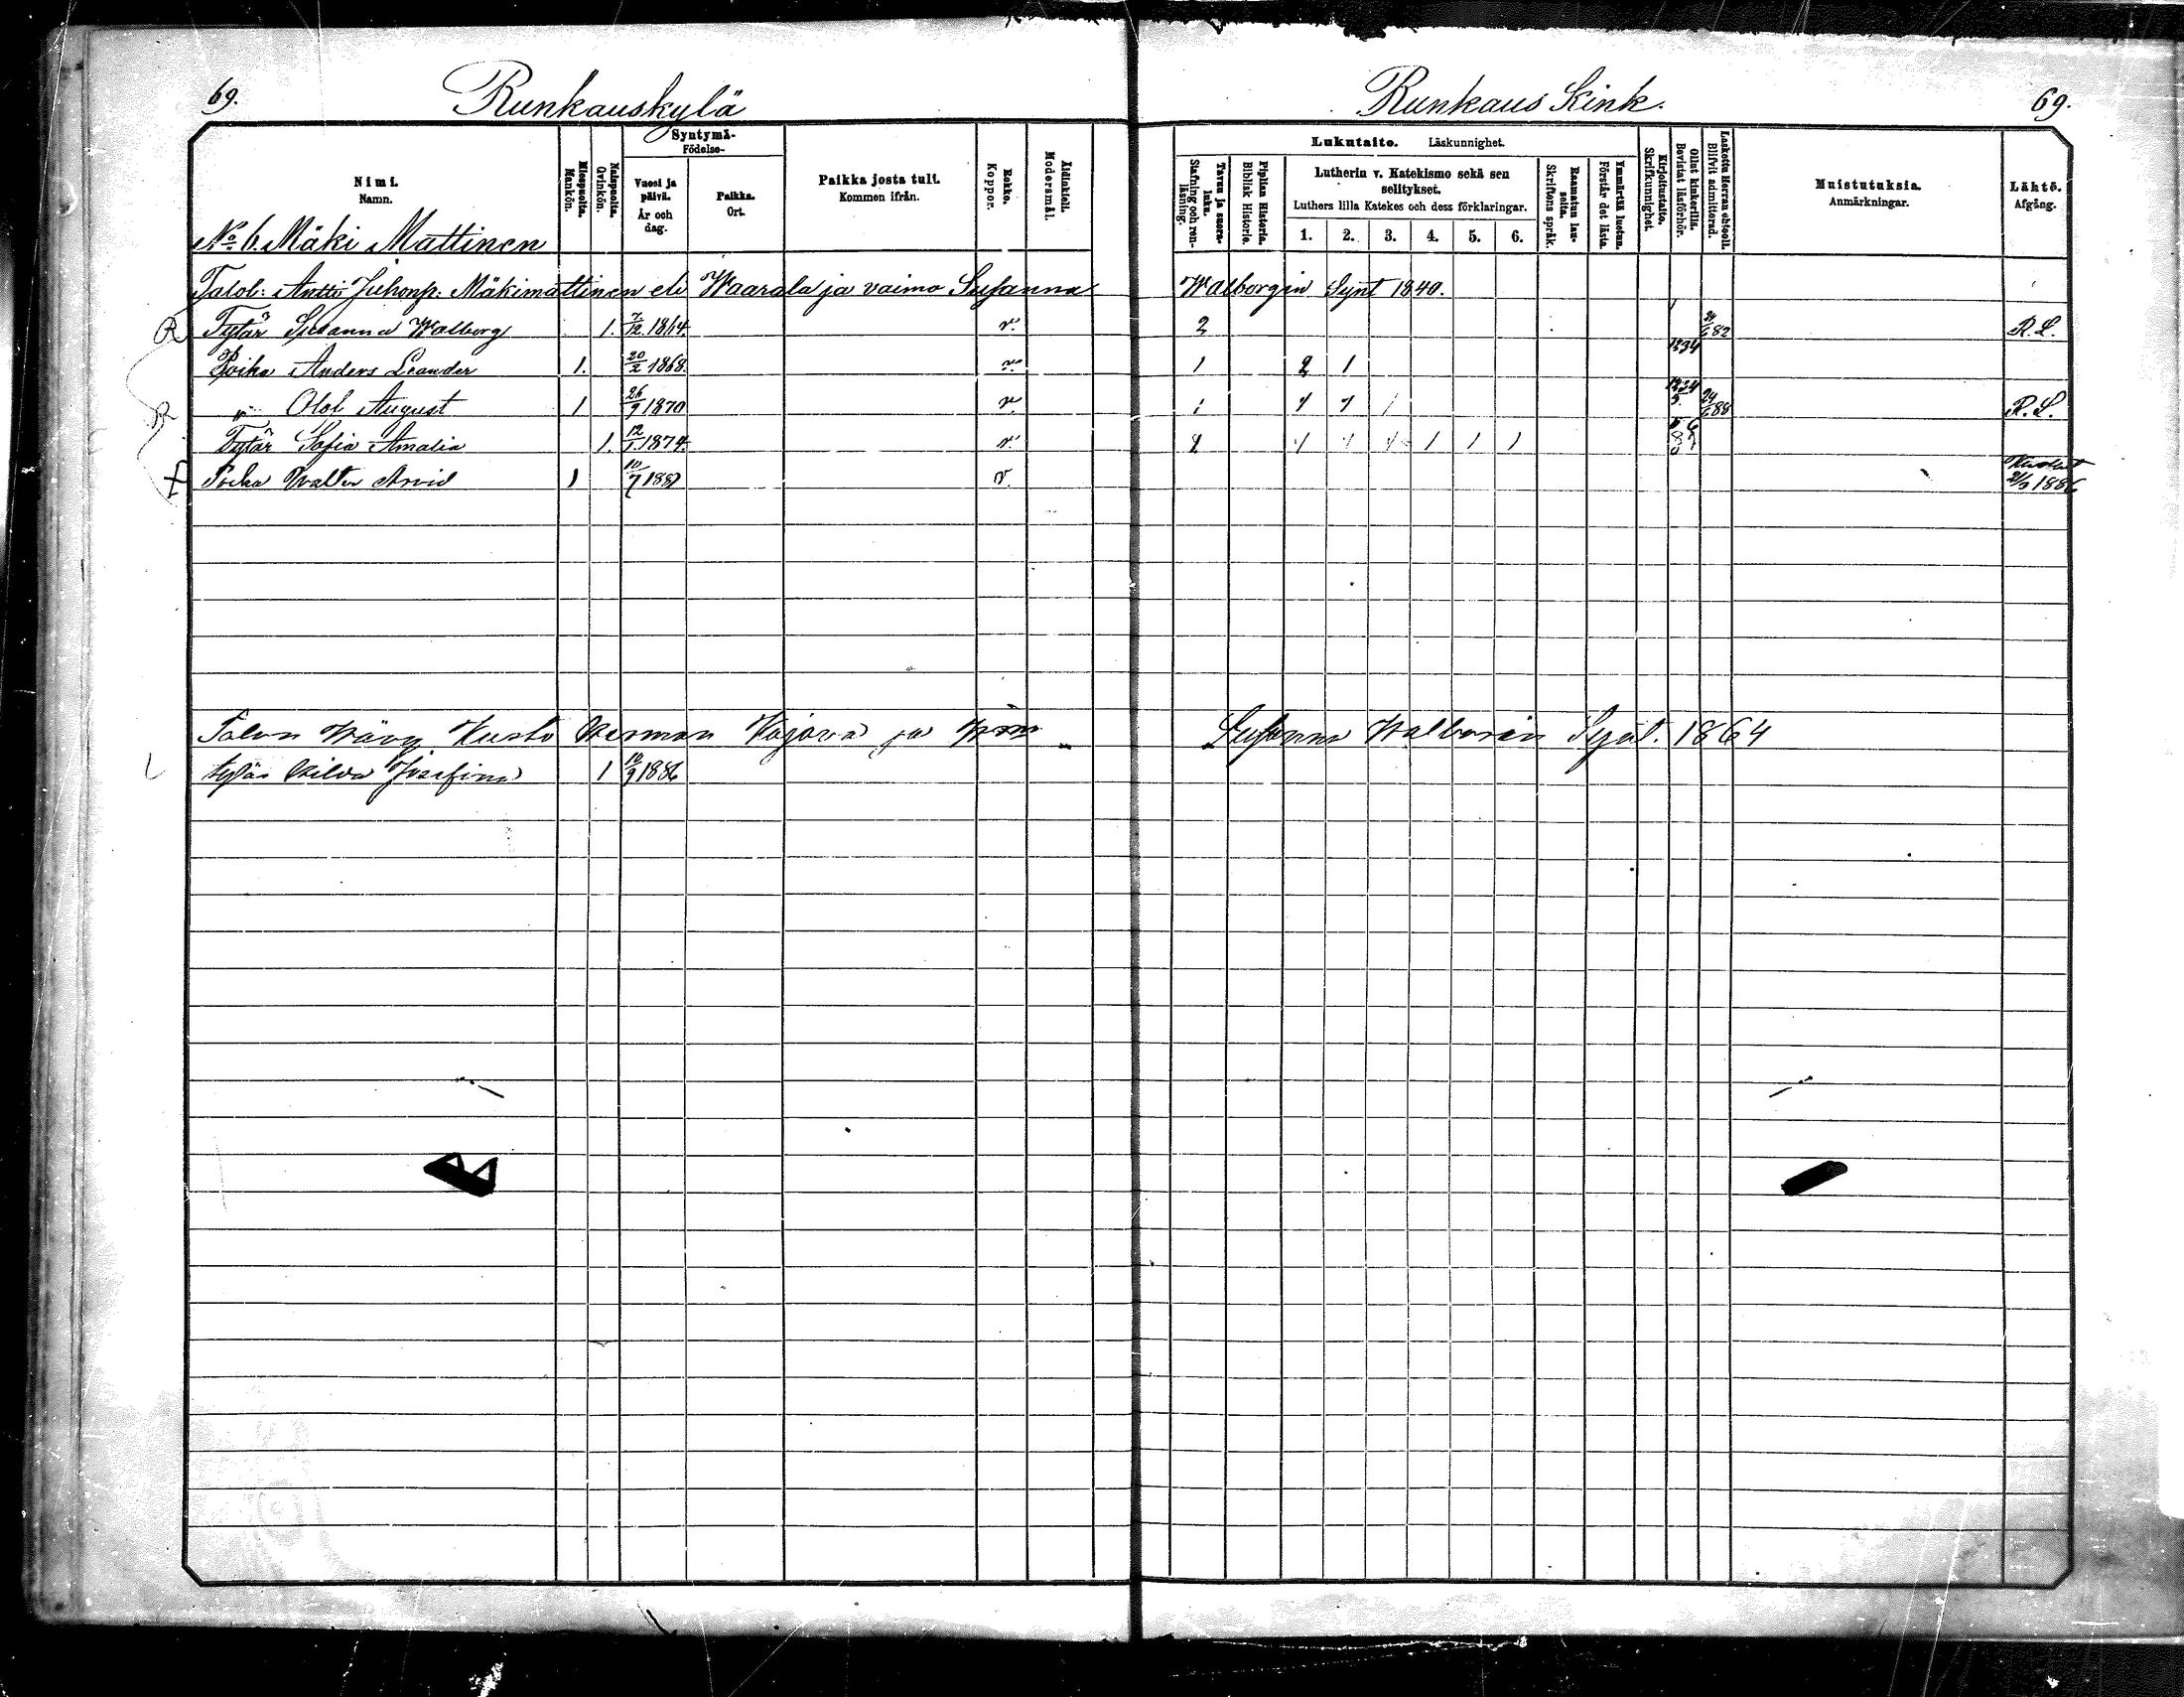 69.
Runkauskylä
Runkaus Kink.
69.
Nimi.
Namn.
Miespuolta.
Mankön.
Naispuolta.
Qvinkön.
Syntymä-
Födelse-
Vuosi ja päivä.
År och dag.
Paikka.
Ort.
Paikka josta tult.
Kommen ifrån.
Rokko.
Koppor.
Äidinkieli.
Modersmål.
Lukutaito. Läskunnighet.
Tavuu ja suora-luku.
Stafning och ren-läsning.
Piplian Historia.
Biblisk Historie.
Lutherin v. Katekismo sekä sen
selitykset.
Luthers lilla Katekes och dess förklaringar.
1. 2. 3. 4. 5. 6.
Raamatun lau-seita.
Skriftens språk.
Ymmärtää luetun.
Förstår det lästa.
Kirjoitustaito.
Skrifkunnighet.
Ollut kinkerillä.
Bevistat läsförhör.
Laskettu Herran ehtooll.
Blifvit admitterad.
Muistutuksia.
Anmärkningar.
Lähtö.
Afgång.
No 6. Mäki Mattinen
Talol: Antti Juhonp: Mäkimattinen eli Waarala ja vaimo Susanna Walborgin Synt 1840.
R Tytär Susanna Walborg 1. 7/12 1864. v. 2 24/6 82 R.L.
Poika Anders Leander 1. 20/2 1868. v 1 2 1 1234
R " Olof August 1 26/9 1870 v. 1 1 1 1 1234 5. 24/6 88 R.L.
Tytär Sofia Amalia 1. 12/1 1874. v. 1 1 1 1 1 1 1
+ Poika Walter Arvid 1 10/7 1881 v. Kuollut 2/9 1886
Talon Wävy Kusto Herman Kojova ja Susanna Walborin Synt. 1864
tytär Hilda Josefina 1 10/9 1886